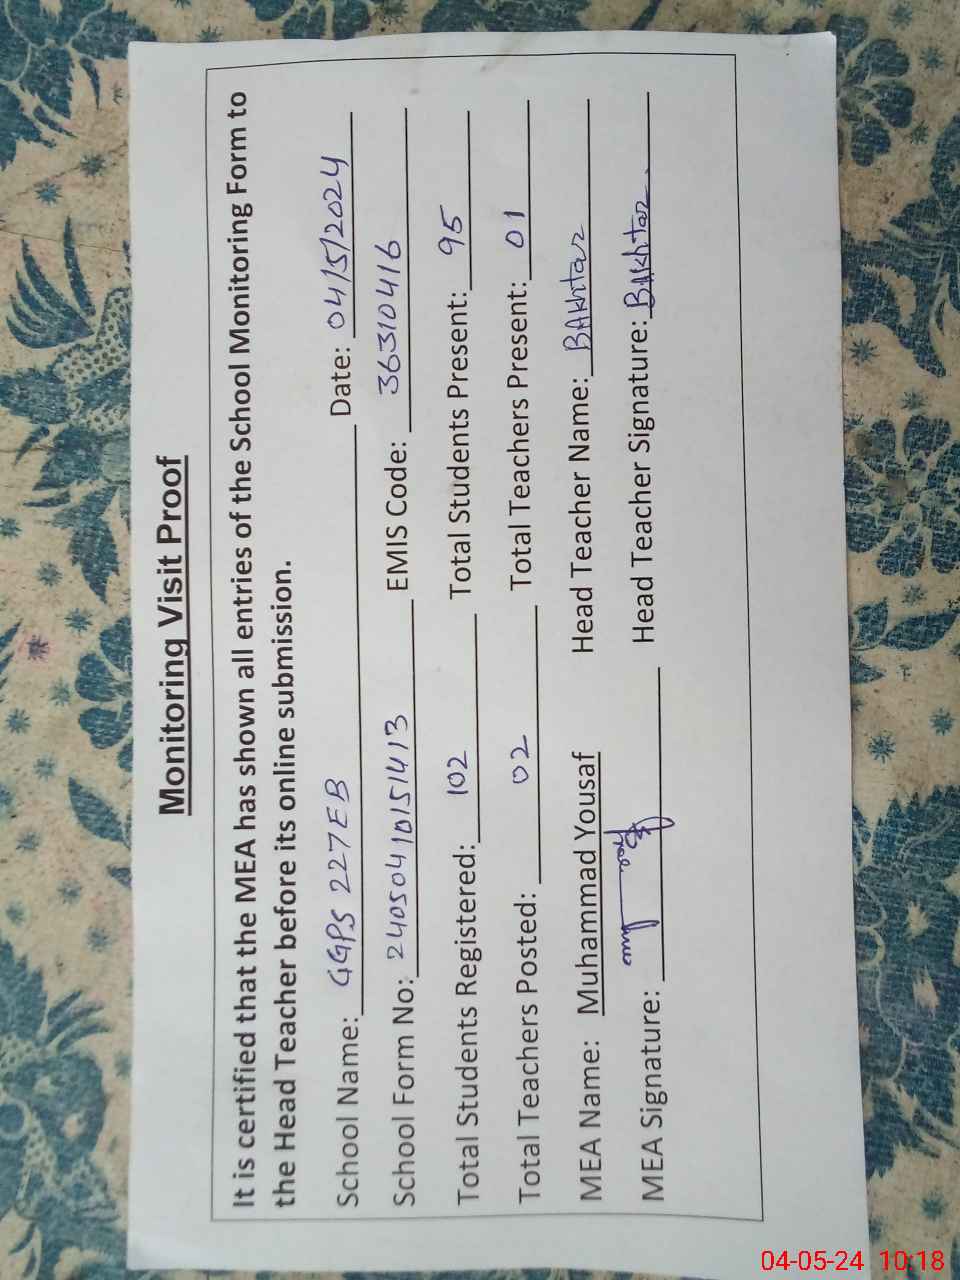 Monitoring Visit Proof
It is certified that the MEA has shown all entries of the School Monitoring Form to
the Head Teacher before its online submission.
School Name: GGPS 227EB Date: 04/5/2024
School Form No: 24050410151413 EMIS Code: 36310416
Total Students Registered: 102 Total Students Present: 95
Total Teachers Posted: 02 Total Teachers Present: 01
MEA Name: Muhammad Yousaf Head Teacher Name: BAkhtar
MEA Signature: Head Teacher Signature: BAkhtar.
04-05-24 10:18